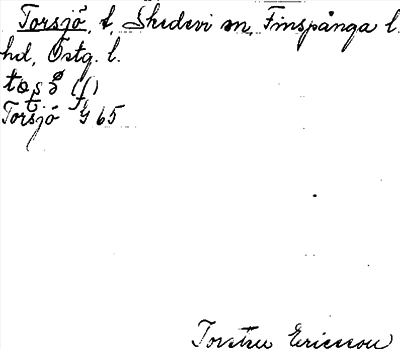 Torsjö, t, Skedevi sn, Finspånga l.
hd, Östg. l.
Torsjö G 65
Torsten Ericsson